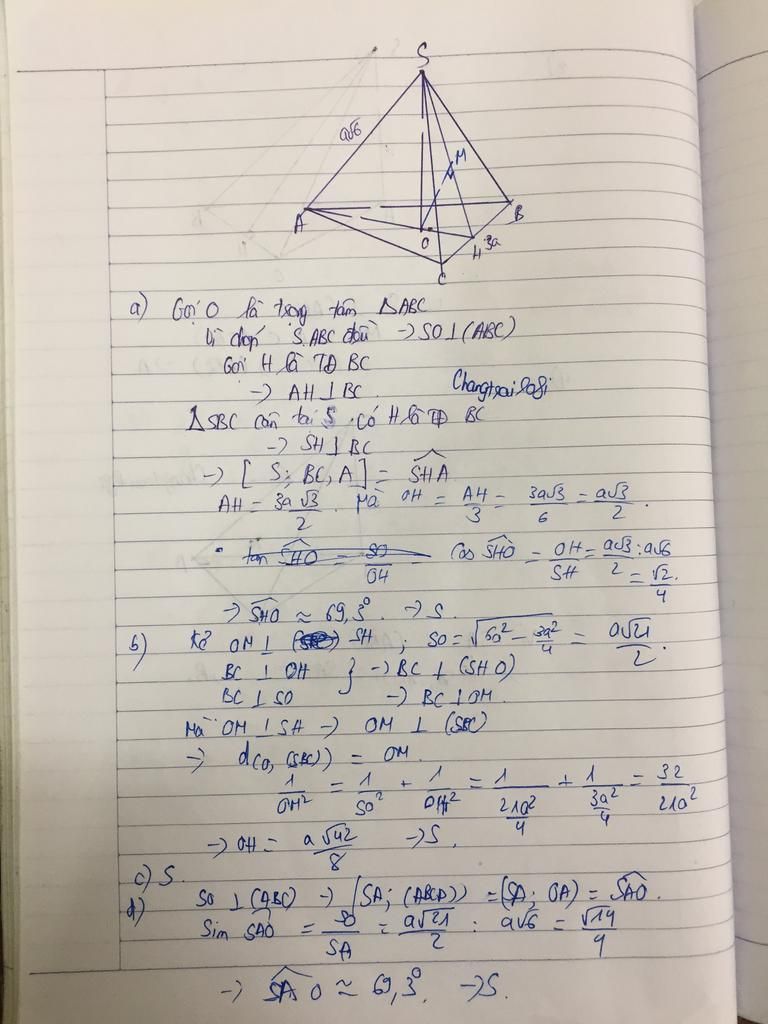 S
a√6
M
A
B
O
H
3a
C
a) Gọi O là trọng tâm ΔABC
Vì chóp S.ABC đều → SO⊥(ABC)
Gọi H là TĐ BC
→ AH⊥BC.
Changtraisogi
ΔSBC cân tại S có H là TĐ BC
→ SH⊥BC
→ [S; BC, A] = \widehat{SHA}
AH = \frac{3a√3}{2}. Mà OH = \frac{AH}{3} = \frac{3a√3}{6} = \frac{a√3}{2}.
tan \widehat{SHO} = \frac{SO}{OH} - Cos \widehat{SHO} = \frac{OH}{SH} = \frac{a√3}{2} : a√6 = \frac{√2}{4}.
→ \widehat{SHO} ≈ 69,3°. → S.
b) Kẻ OM⊥ SH ; SO = \sqrt{6a² - \frac{3a²}{4}} = \frac{a√21}{2}.
BC ⊥ OH } → BC ⊥ (SHO)
BC ⊥ SO → BC⊥OM.
Mà OM⊥SH → OM ⊥ (SBC)
→ d(O, (SBC)) = OM.
\frac{1}{OM²} = \frac{1}{SO²} + \frac{1}{OH²} = \frac{1}{\frac{21a²}{4}} + \frac{1}{\frac{3a²}{4}} = \frac{32}{21a²}
→ OH = \frac{a√42}{8} → S.
c) S.
d) SO ⊥(ABC) → (SA; (ABCD)) = (SA; OA) = \widehat{SAO}.
Sin \widehat{SAO} = \frac{SO}{SA} = \frac{a√21}{2} : a√6 = \frac{√14}{4}
→ \widehat{SAO} ≈ 69,3°. → S.